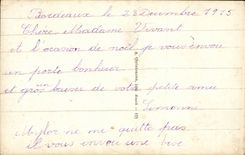 Bordeaux le 28 Decembre 1915
Chere Madame Vivant
et l'ocasion de noël je vous envou
un porte bonheur
et gros baiser de votre petite amie
Simonne
Mylor ne me quitte pas
il vous envou une bise